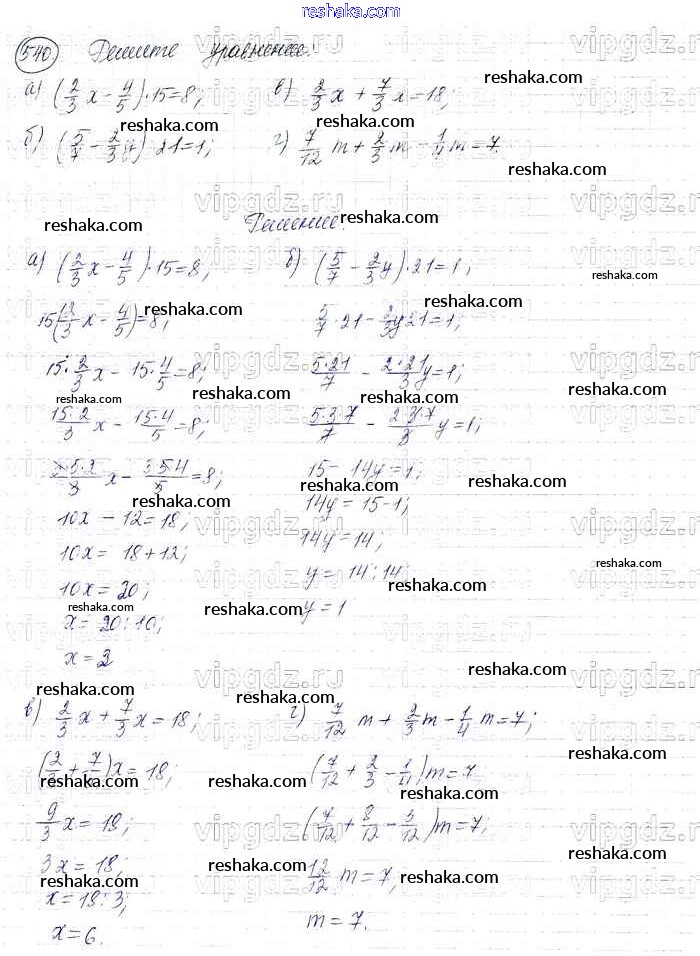 reshaka.com
540. Решите уравнение:
а) (2/3 x - 4/5)·15=8; в) 2/3 x + 7/3 x = 18;
б) (5/7 - 2/3 y)·21=1; г) 7/12 m + 2/3 m - 1/4 m = 7.
Решение:
а) (2/3 x - 4/5)·15=8;
15(2/3 x - 4/5)=8;
15·2/3 x - 15·4/5=8;
15·2/3 x - 15·4/5=8;
5·2/3 x - 3·5·4/5=8;
10x - 12=18;
10x = 18+12;
10x = 20;
x = 20:10;
x = 2
б) (5/7 - 2/3 y)·21=1;
5/7·21 - 2/3 y 21=1;
5·21/7 - 2·21/3 y=1;
5·3·7/7 - 2·3·7/3 y=1;
15 - 14y=1;
14y = 15-1;
14y=14;
y = 14:14;
y = 1
в) 2/3 x + 7/3 x = 18;
(2/3 + 7/3)x = 18;
9/3 x = 18;
3x = 18;
x = 18:3;
x = 6.
г) 7/12 m + 2/3 m - 1/4 m = 7;
(7/12 + 2/3 - 1/4)m = 7
(7/12 + 8/12 - 3/12)m=7;
12/12 m = 7,
m = 7.